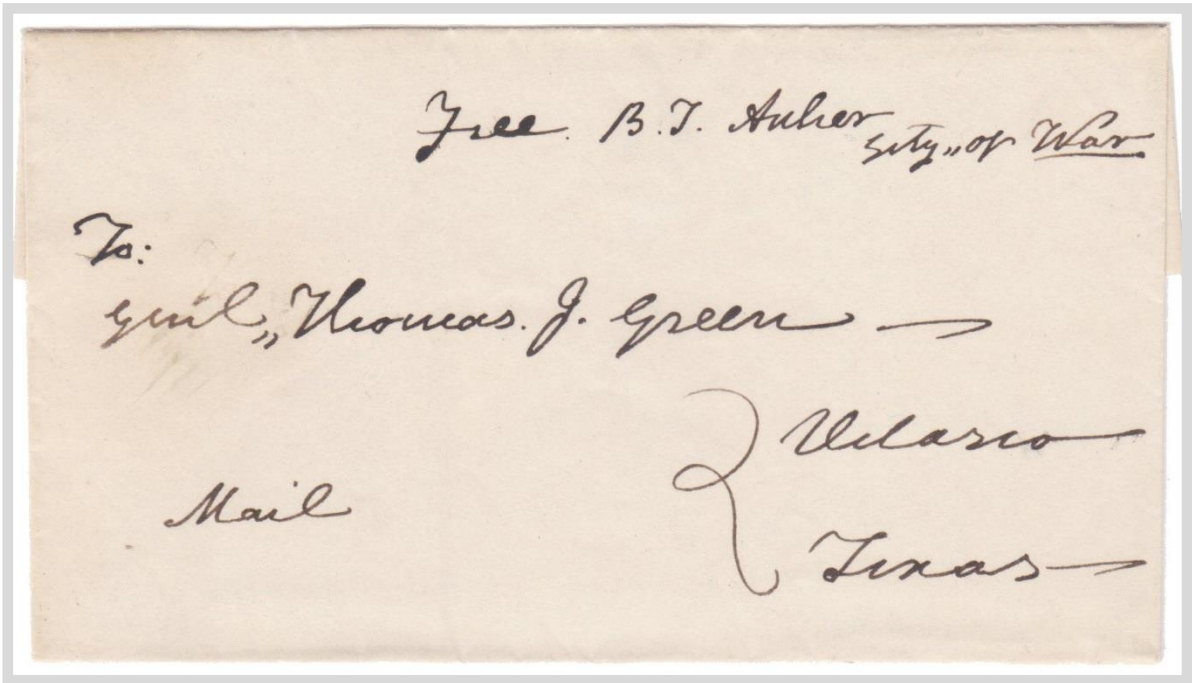 Free. B. T. Archer
Scty„ of War
To:
Genl„ Thomas. J. Green
Velasco
Mail
Texas